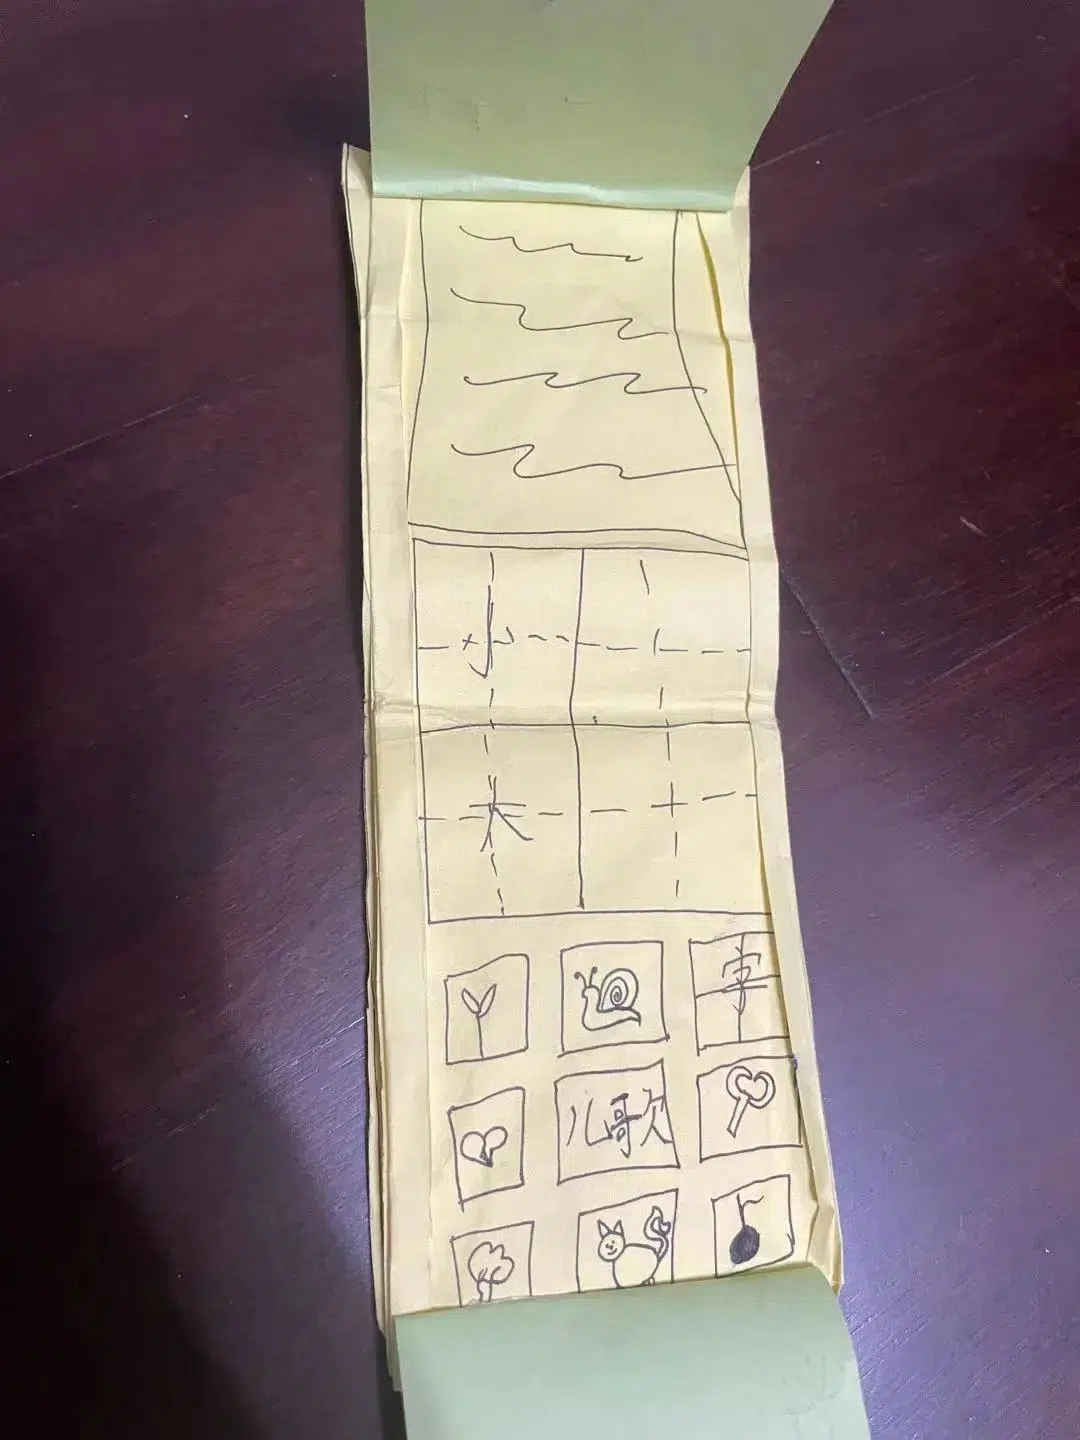 小
大
字
儿歌